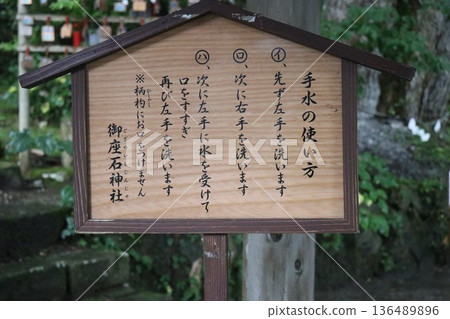 手水の使い方
㋑、先ず左手を洗います
㋺、次に右手を洗います
㋩、次に左手に水を受けて
口をすすぎ
再び左手を洗います
※柄杓には口をつけません
御座石神社
136489896